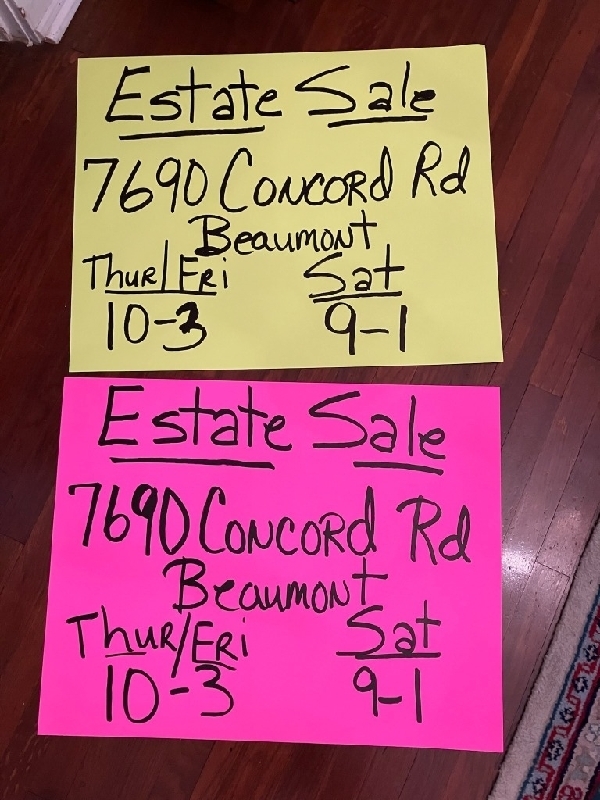 Estate Sale
7690 Concord Rd
Beaumont
Thur/Fri Sat
10-3 9-1
Estate Sale
7690 Concord Rd
Beaumont
Thur/Fri Sat
10-3 9-1